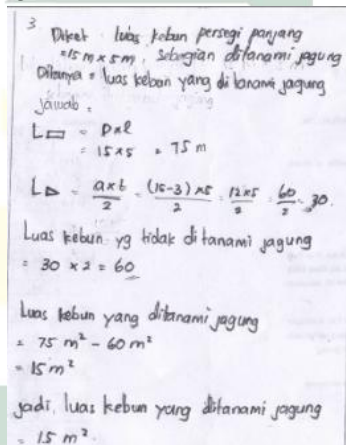 3
Diket luas kebun persegi panjang
= 15 m x 5 m, sebagian ditanami jagung
Ditanya = luas kebun yang di tanami jagung
jawab =
L▭ = p x l
= 15 x 5 = 75 m
L▷ = a x t / 2 = (15-3) x 5 / 2 = 12 x 5 / 2 = 60 / 2 = 30.
Luas kebun yg tidak di tanami jagung
= 30 x 2 = 60
Luas kebun yang ditanami jagung
= 75 m² - 60 m²
= 15 m²
jadi, luas kebun yang ditanami jagung
= 15 m².